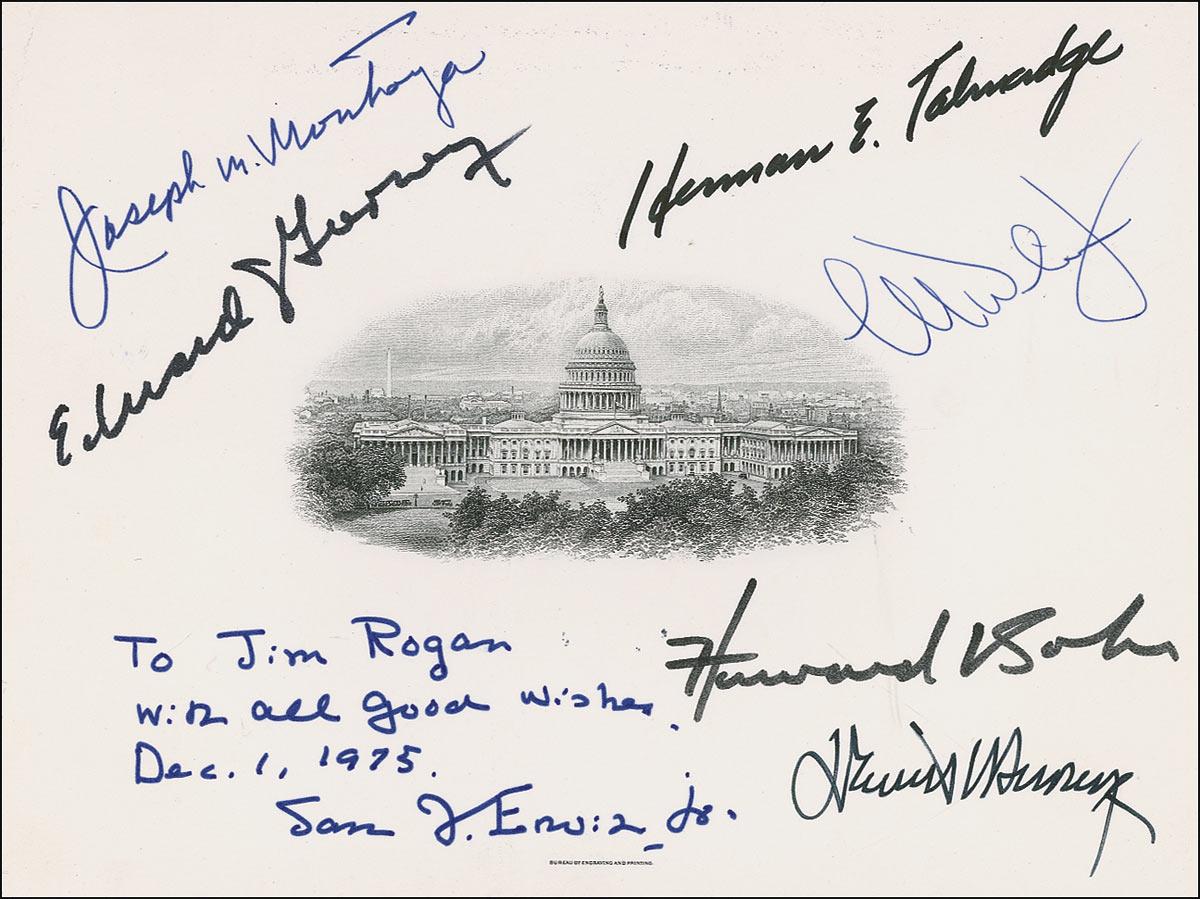 Joseph M. Montoya
Herman E. Talmadge
Edward J Gurney
To Jim Rogan
with all good wishes.
Dec. 1, 1975.
Sam J. Ervin, Jr.
Howard Baker
BUREAU OF ENGRAVING AND PRINTING.